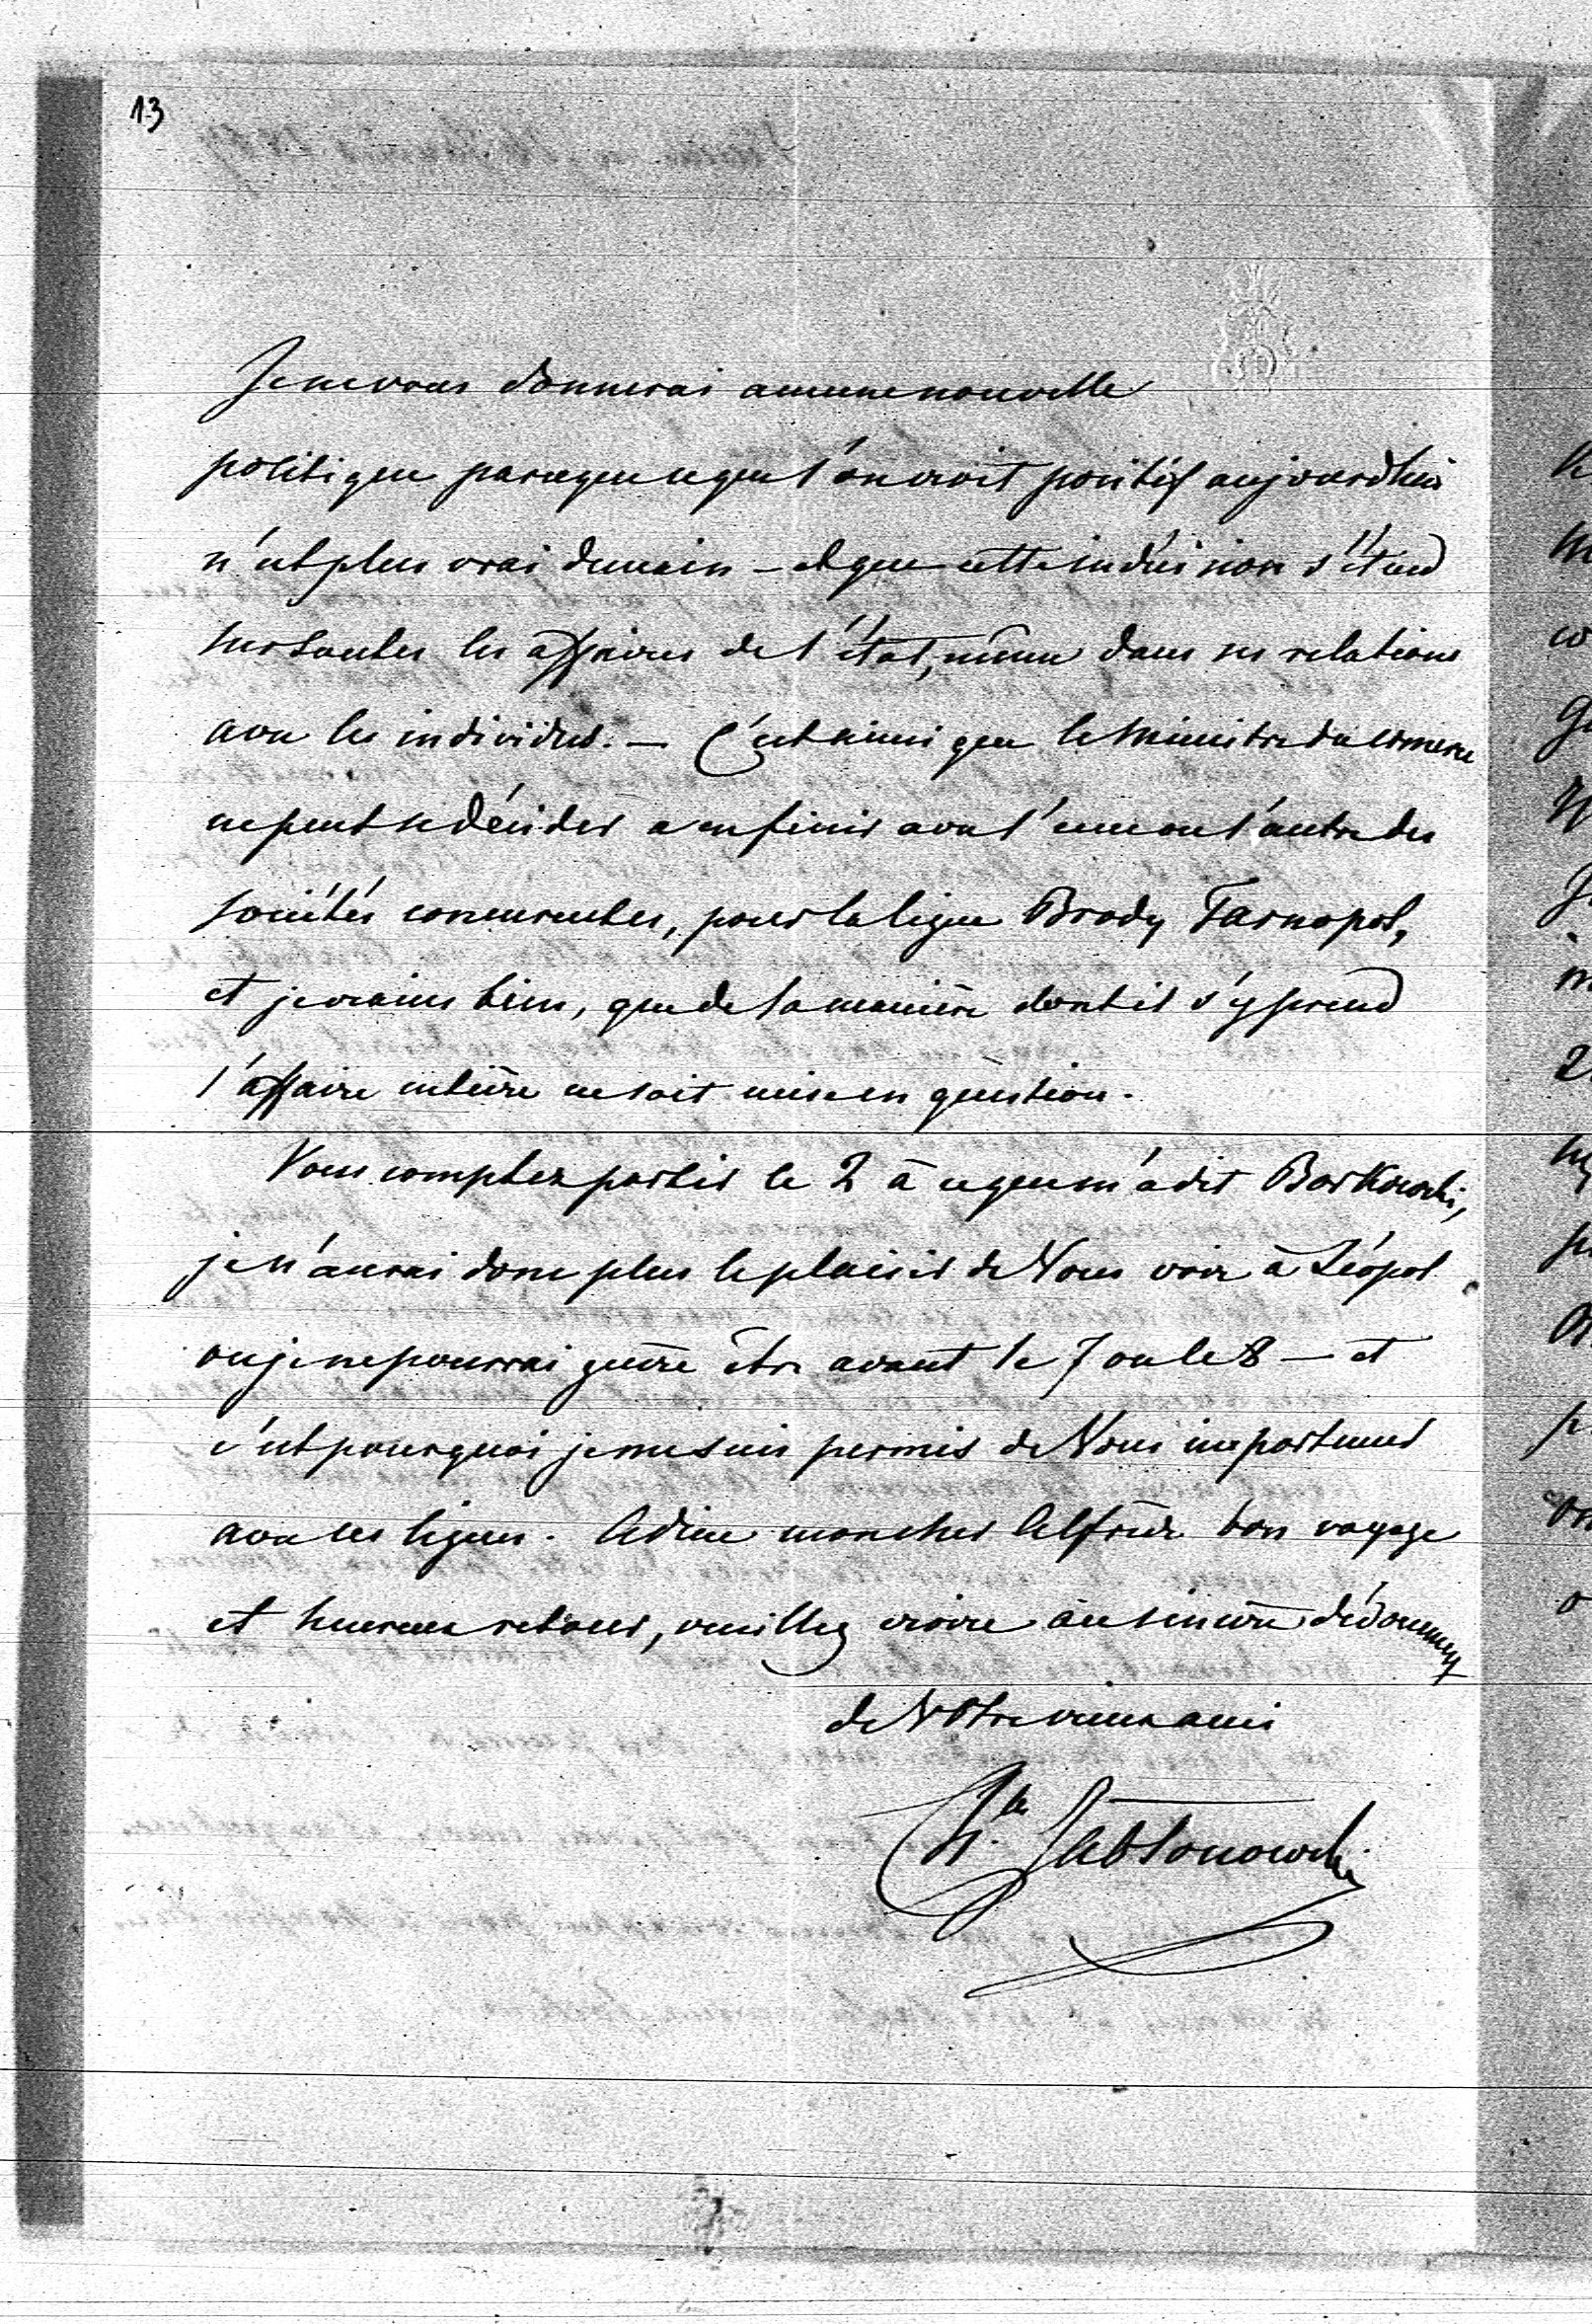 13
Je ne vous donnerai aucune nouvelle
politique parceque ce que l'on croit positif aujourdhui
n'est plus vrai demain – et que cette indécision s'étend
sur toutes les affaires de l'état, même dans ses relations
avec les individus. – C'est ainsi que le Ministre du comerce
ne peut se décider a en finir avec l'une ou l'autre des
sociétés concurentes, pour la ligne Brody Tarnopol,
et je crains bien, que de la manière dont il s'y prend
l'affaire entière ne soit mise en question.
Vous comptez partir le 2 à ce que m'a dit Borkowski,
je n'aurai donc plus le plaisir de Vous voir à Léopol
ou je ne pourrai guère être avant le 7 ou le 8 – et
c'est pourquoi je me suis permis de Vous importuner
avec ces lignes. Adieu mon cher Alfred bon voyage
et heureux retour, veuillez croire au sincère dévouement
de Votre vieux ami
Jablonowski